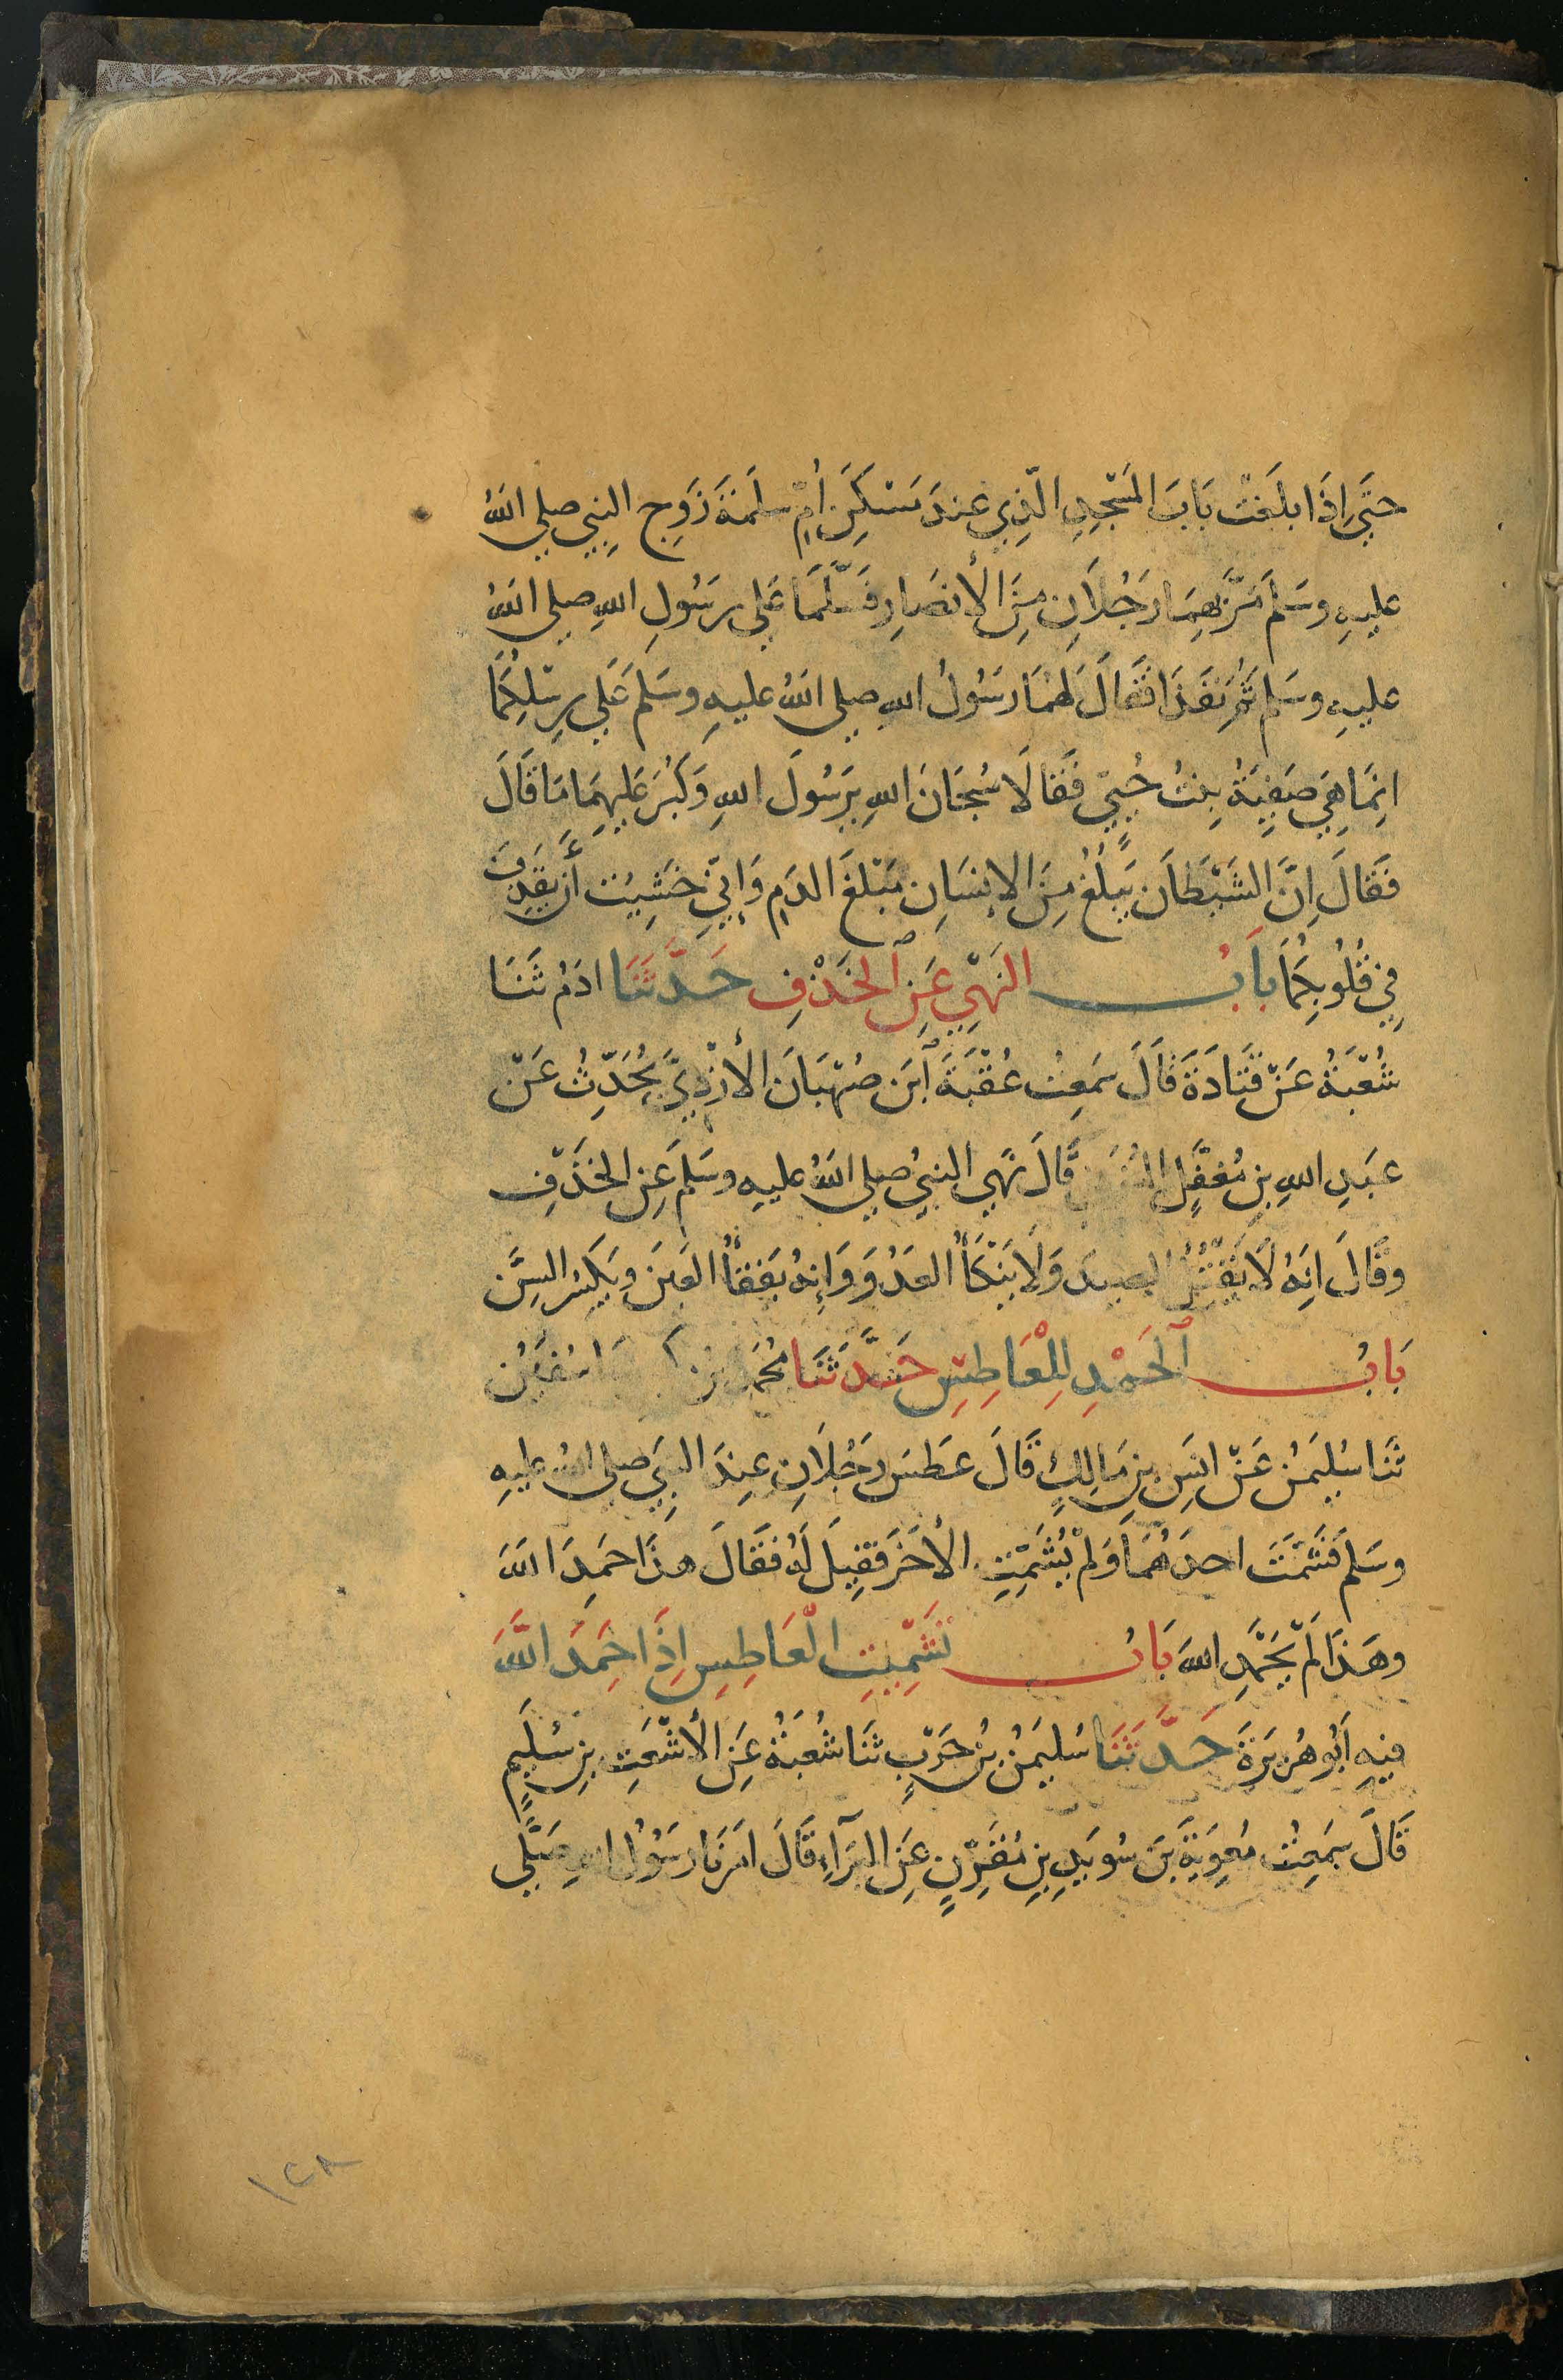 حَتَّى اِذَا بلَغَتْ بَابَ المَسْجِدِ الَّذِي عندَ مَسْكَنِ اُمِّ سلَمَةَ زَوجِ النبِي صلى اللهُ
عليهِ وسَلمَ مَرَّ بهِمَا رَجُلَانِ مِنَ الأنصَارِ فَسَلَّمَا عَلى رسَولِ اللهِ صلى اللهُ
عليهِ وسَلم ثمَّ نفَذَا فَقَالَ لَهُمَا رسَولُ اللهِ صلى اللهُ عليهِ وسَلمَ عَلى رِسْلِكُمَا
انِمَا هِيَ صَفِيَّةُ بِنتُ حُيَيٍّ فَقَالَا سُبحَانَ اللهِ يرَسُولَ اللهِ وَكَبُرَ عَلَيهِمَا مَا قَالَ
فَقَالَ اِنَّ الشَيْطَانَ يَبلُغُ مِنَ الاِنسَانِ مَبْلغَ الدَمِ وَإنِّي خشِيتُ أَن يَقذِفَ
فِي قُلُوبِكُمَا بَابُ النَهْيِ عَنِ الخَذْفِ حَدَّثَنَا ادَمُ ثَنَا
شُعْبَةُ عَنْ قَتَادَةَ قَالَ سَمِعتُ عُقْبَةَ ابَن صُهْبَانَ الأزْدِيَّ يُحَدِّثُ عَنْ
عَبدِ اللهِ بنِ مُغفَّلٍ قَالَ نَهَى النبيُ صلى اللهُ عليهِ وسَلمَ عَنِ الخَذْفِ
وقَالَ اِنَهُ لَا يَقْتُلُ الصيدَ وَلَا يَنْكَأُ العَدُوَ وَإنِهُ يَفقأُ العَينَ ويَكسِرُ السِّنَ
بَابُ الحَمْدِ لِلْعَاطِسِ حَدَّثَنَا مُحَمدُ بنُ سُفيَنُ
ثَنَا سُلَيمَنُ عَنْ انَسِ بنِ مَالِكٍ قَالَ عَطسَ رَجُلَانِ عِندَ النبِيَ صلى اللهُ عليهِ
وسَلمَ فشَمَّتَ احدَهُمَا وَلمْ يُشَمِّتِ الأخَرَ فقِيلَ لَهُ فقَالَ هذَا حمِدَ اللهَ
وهَذَا لَمْ يَحْمَدِ اللهَ بَابُ تَشْمِيتِ العَاطِسِ اِذَا حَمِدَ اللَّهَ
فيهِ اَبُو هُرَيرَةَ حَدَّثَنَا سُليمَنُ بنُ حَرْبٍ ثنَا شُعبَةُ عَنِ الأشْعَثِ بنِ سُلَيمٍ
قَالَ سَمِعتُ مُعوِيَةَ بنَ سُويَدِ بنِ مُقَرِّنٍ عَنِ البَرَآءِ قَالَ امَرَنَا رسَولُ اللهِ صَلَّى
١٢٨